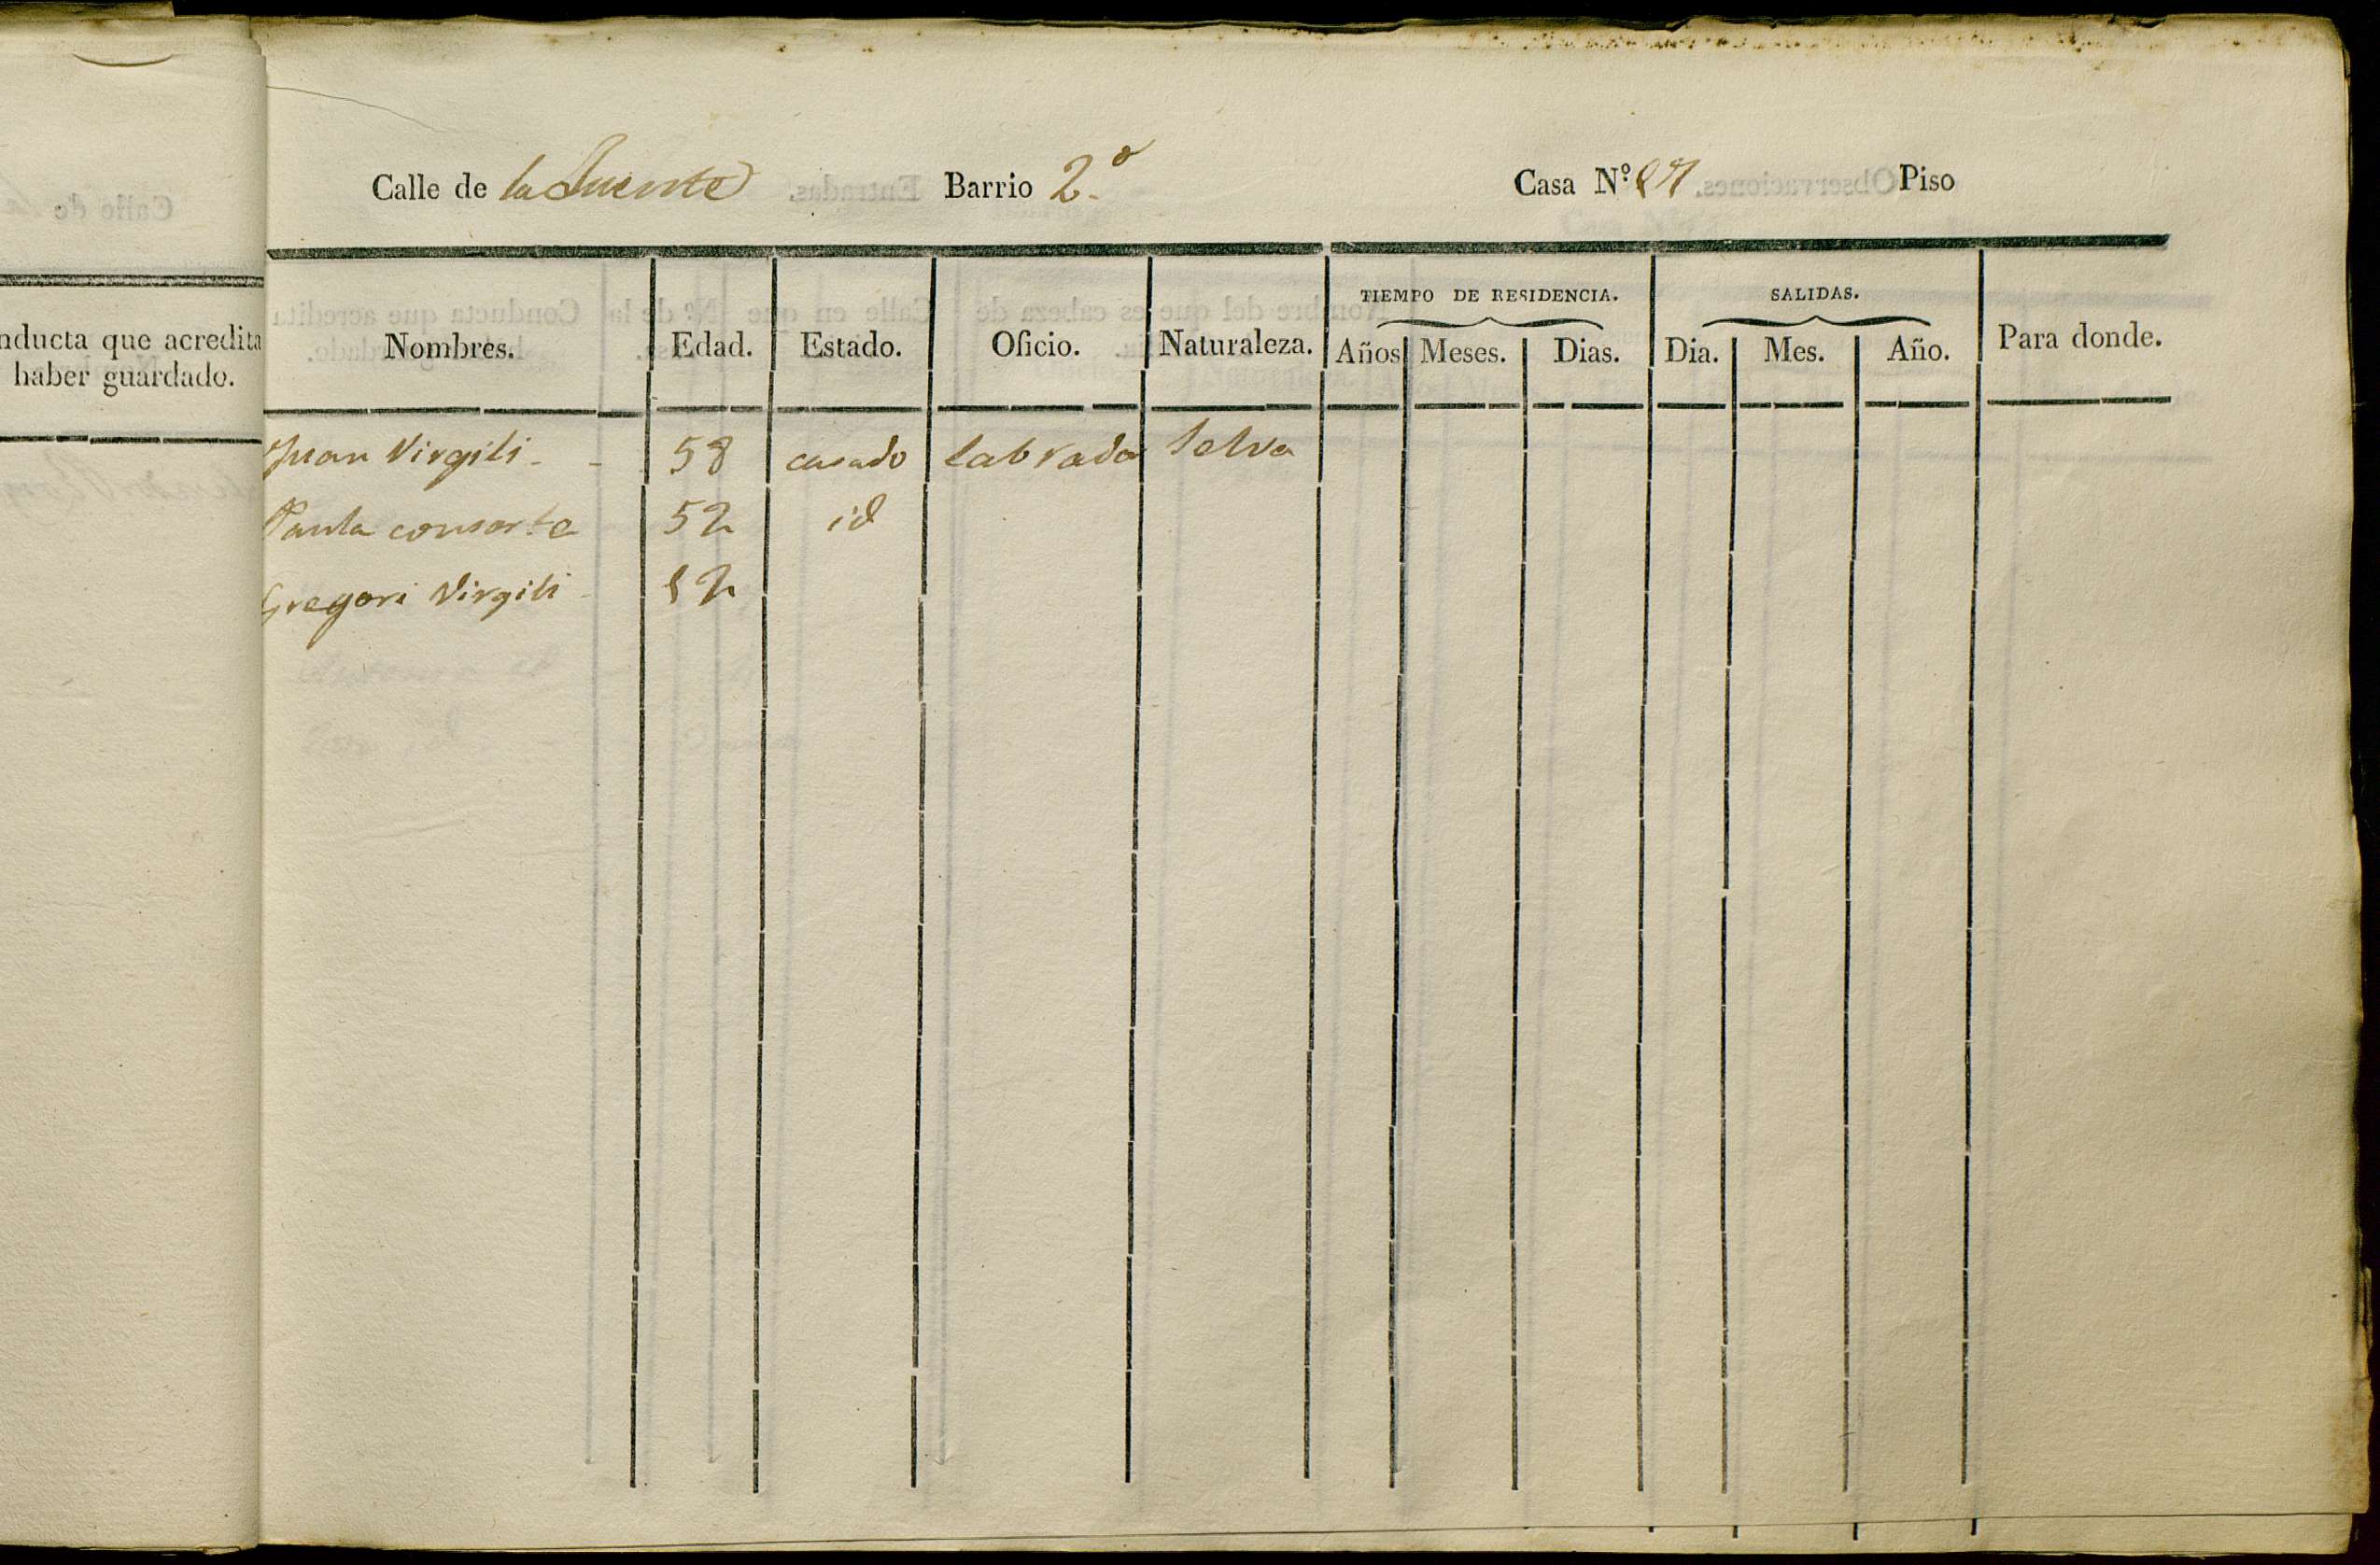 Calle de la Fuente Barrio 2.º Casa N.º 17 Piso
nducta que acredita
haber guardado.
TIEMPO DE RESIDENCIA. SALIDAS.
Nombres. Edad. Estado. Oficio. Naturaleza. Años Meses. Dias. Dia. Mes. Año. Para donde.
Juan Virgili - - 58 casado labrador Selva
Paula consorte 52 id
Gregori Virgili - 12